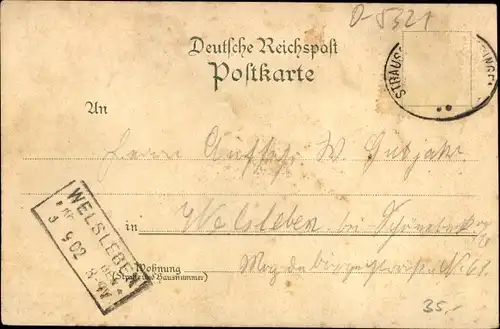 D-5321
Deutsche Reichspost
Postkarte
STRAUSS
An
Herrn W. Gutjahr
WELSLEBEN
9 02 8-9V
in Welsleben bei Schönebeck a/E
Wohnung
(Straße und Hausnummer)
Magdeburgerstr. N. 68.
35,-